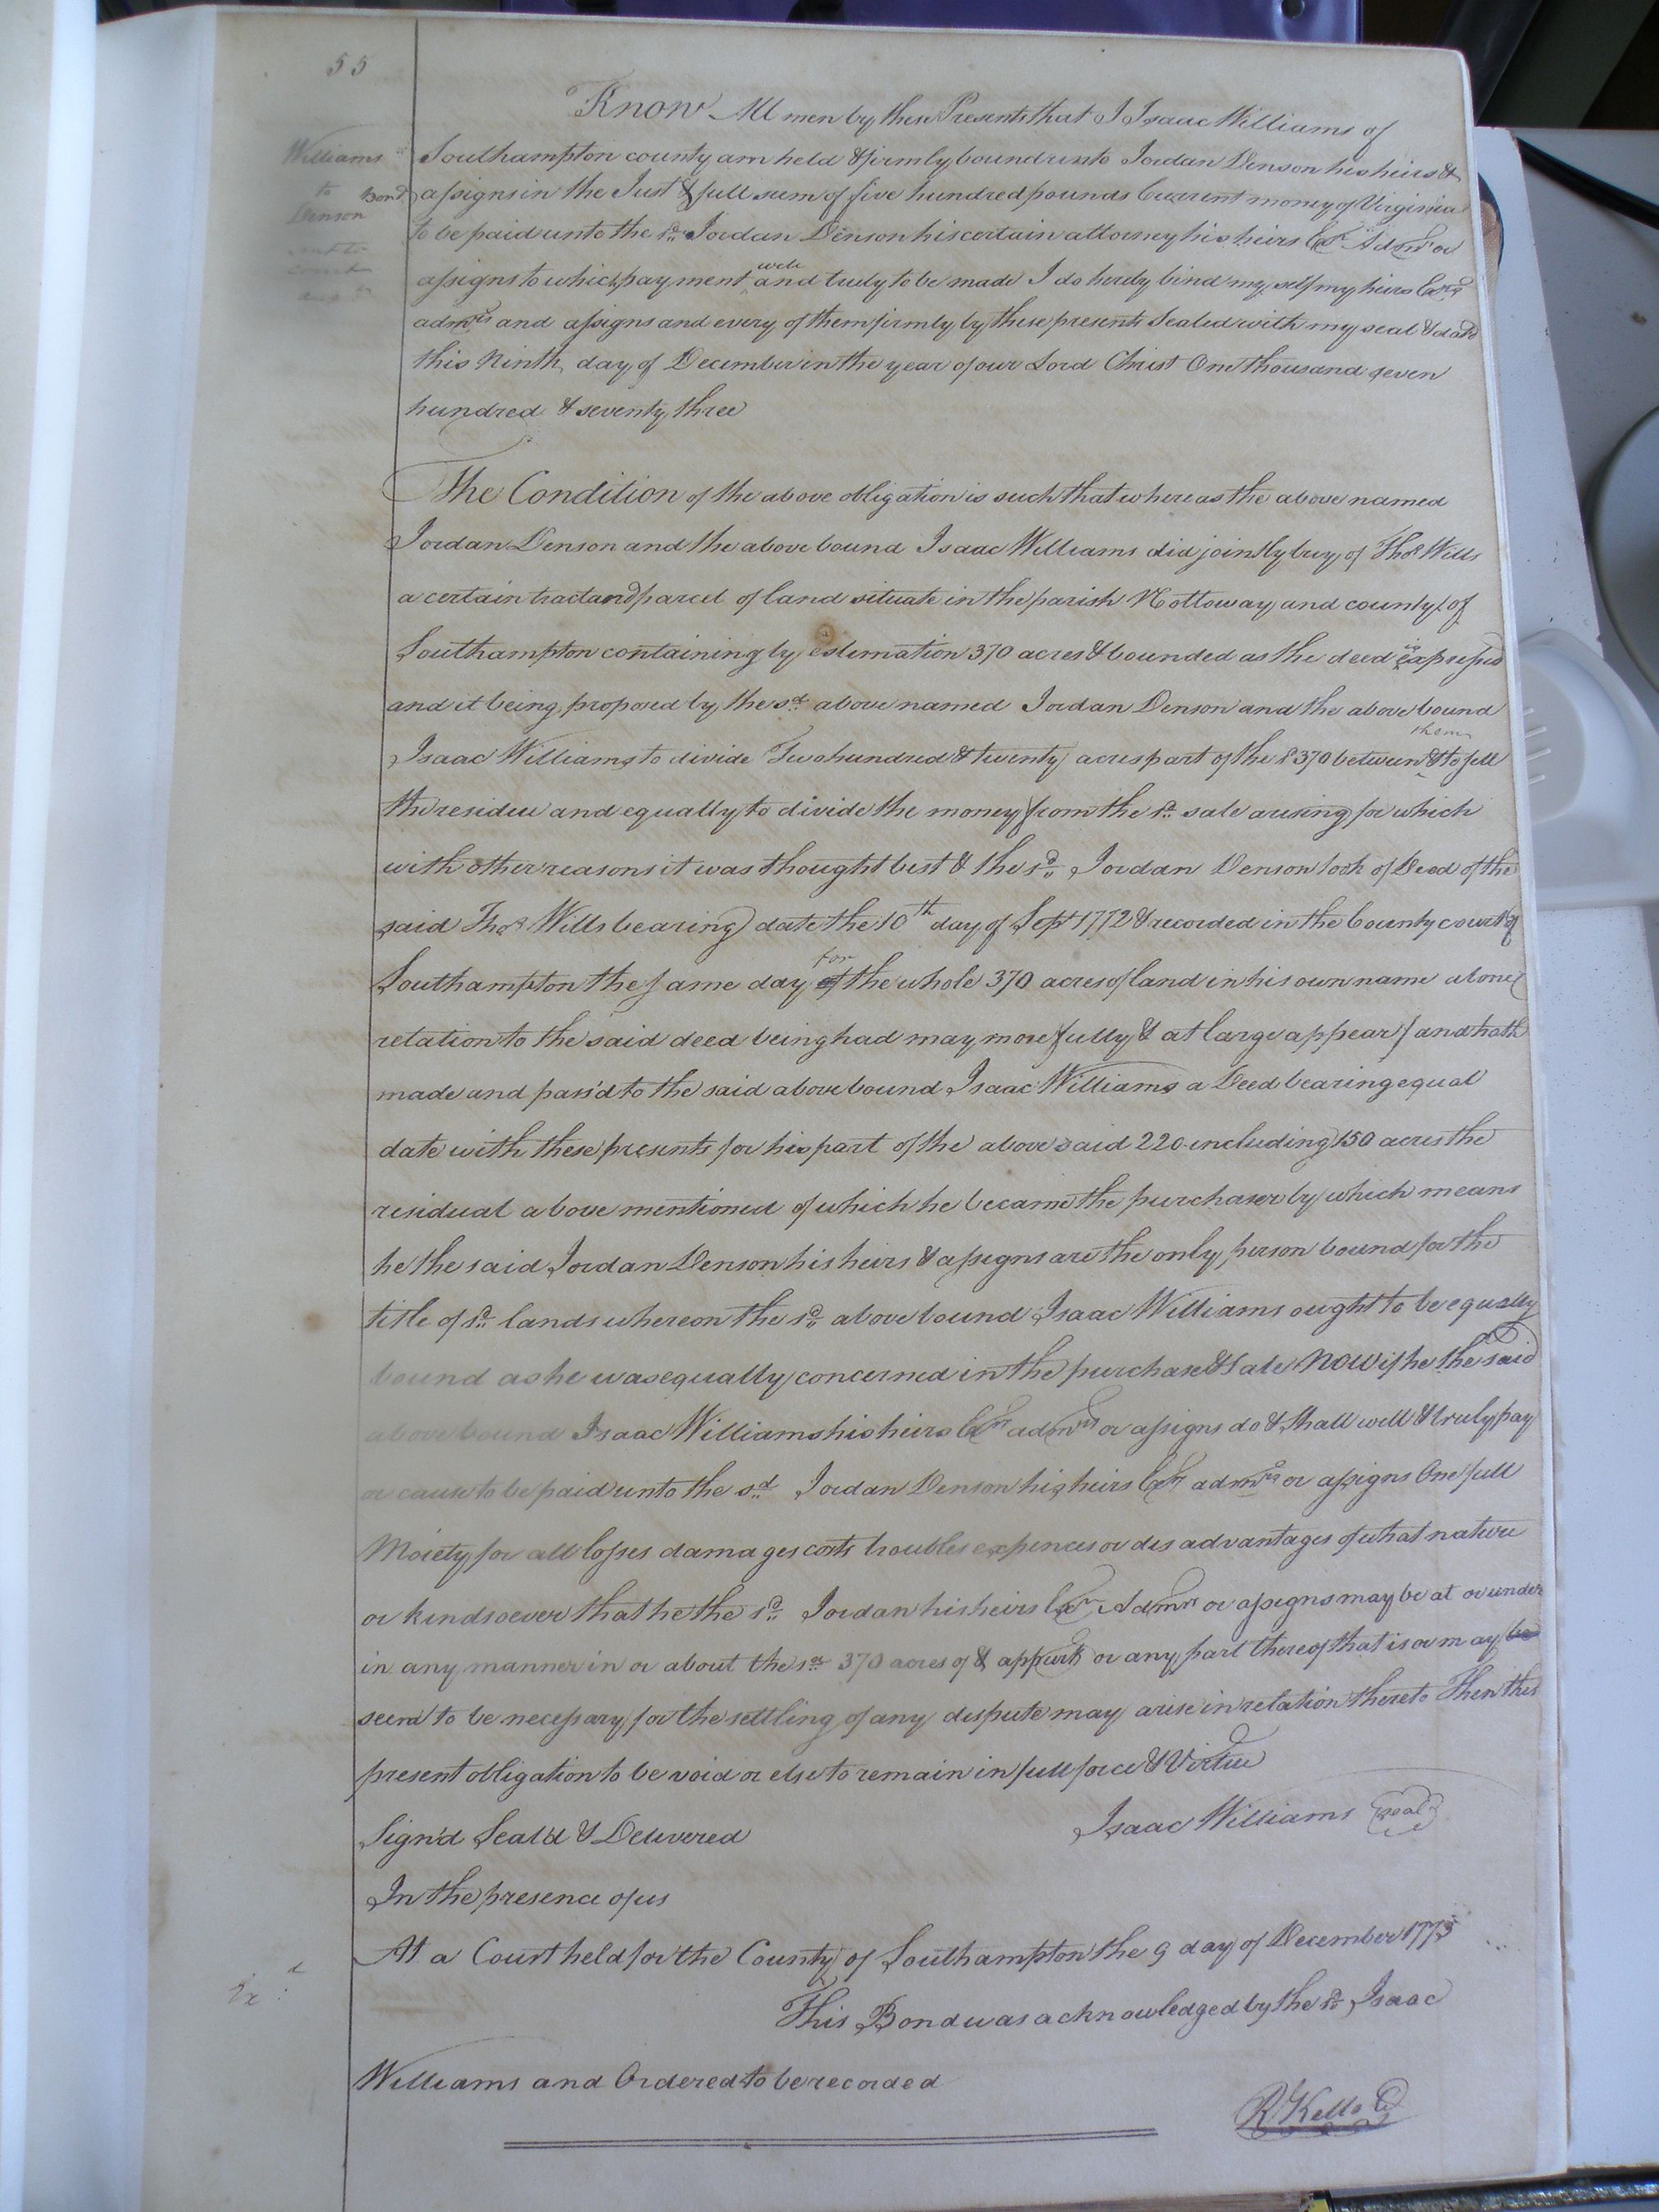 55
Know All men by these Presents that I Isaac Williams of
Williams
Southampton county am held & firmly bound unto Jordan Denson his heirs &
to Bond
assigns in the Just & full sum of five hundred pounds Current money of Virginia
Denson
to be paid unto the sd. Jordan Denson his certain attorney his heirs Exr. Admr. or
assigns to which payment well and truly to be made I do herely bind my self my heirs Exrs
admrs and assigns and every of them firmly by these presents Sealed with my seal & dated
this Ninth day of December in the year of our Lord Christ One thousand seven
hundred & seventy three
The Condition of the above obligation is such that whereas the above named
Jordan Denson and the above bound Isaac Williams did jointly buy of Thos Wills
a certain tract and parcel of land situate in the parish Nottoway and county of
Southampton containing by estemation 370 acres & bounded as the deed is expressed
and it being proposed by the sd. above named Jordan Denson and the above bound
Isaac Williams to divide Two hundred & twenty acres part of the s 370 between them & to sell
the residue and equally to divide the money from the sd. sale arising for which
with other reasons it was thought best & the sd. Jordan Denson took of Deed of the
said Thos Wills bearing date the 10th day of Sept 1772 & recorded in the County court of
Southampton the same day of for the whole 370 acres of land in his own name alone (
relation to the said deed being had may more fully & at large appear) and hath
made and pass'd to the said above bound Isaac Williams a Deed bearing equal
date with these presents for his part of the above said 220 including 150 acres the
residual above mentioned of which he became the purchaser by which means
he the said Jordan Denson his heirs & assigns are the only person bound for the
title of sd. lands whereon the sd. above bound Isaac Williams ought to be equally
bound as he was equally concerned in the purchase & sale Now if he the said
above bound Isaac Williams his heirs Exrs admrs or assigns do & shall well & truly pay
or cause to be paid unto the sd. Jordan Denson his heirs Exr admrs or assigns One full
Moiety for all losses damages costs troubles expences or dis advantages of what nature
or kind soever that he the sd. Jordan his heirs Exr. Admrs or assigns may be at or under
in any manner in or about the sd. 370 acres of & appurts or any part thereof that is or may be
seem to be necessary for the settling of any dispute may arise in relation thereto Then this
present obligation to be void or else to remain in full force & Virtue
Isaac Williams seal
Sign'd Seal'd & Delivered
In the presence of us
At a Court held for the County of Southampton the 9 day of December 1773
This Bond was acknowledged by the sd. Isaac
Williams and Ordered to be recorded
R Kello C